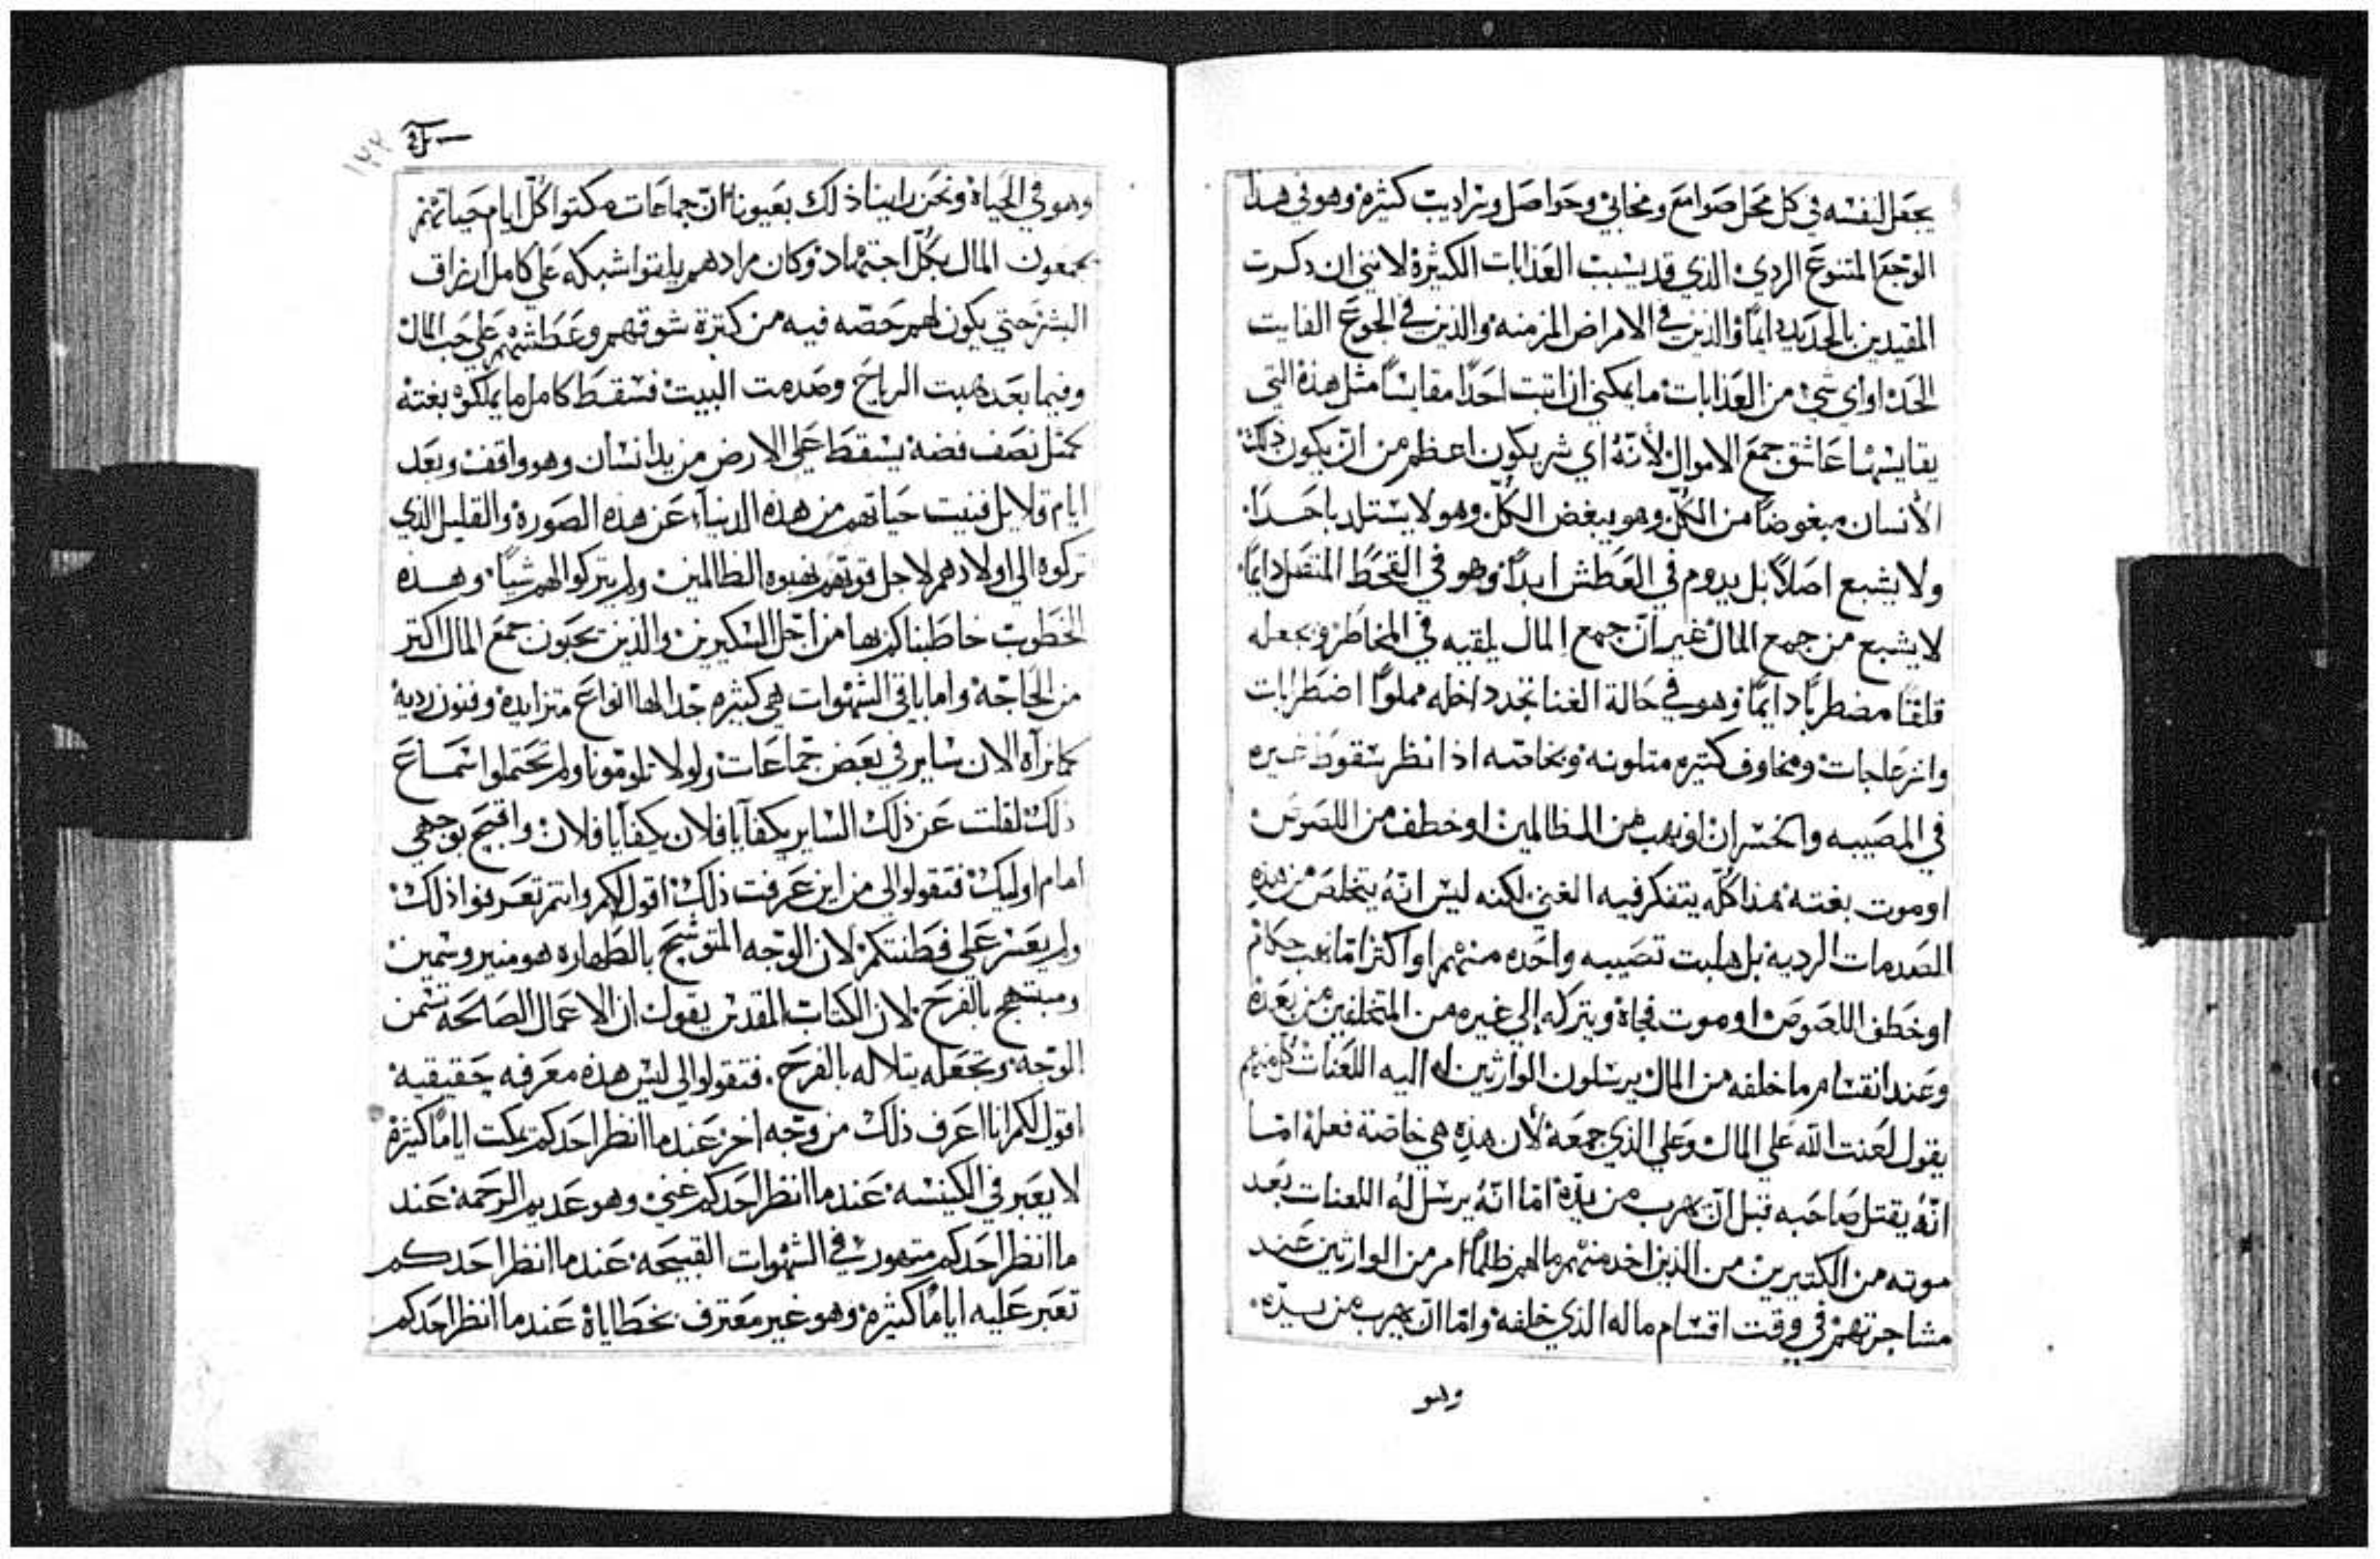 يجعل لنفسه في كل محل صوامع ومخابئ وحواصل وتراديب كثيرة وهو في هذا
الوجع المتنوع الردي الذي قد يسبب العذابات الكثيرة لانني ان ذكرت
المقيدين بالحديد دايمًا والذين في الامراض المزمنه والذين في الجوع الفايت
الحد او اي شي من العذابات ما يمكنني ان اثبت احدًا مقايسًا مثل هذه التي
يقايسها عاشق جمع الاموال لأنّهُ اي شر يكون اعظم من انّ يكون ذلك
الأنسان مبغوضًا من الكلّ وهو يبغض الكلّ وهو لا يستلد باحدًا
ولا يشبع اصلاً بل يدوم في العطش ابدًا وهو في القحط المتصل دايمًا
لا يشبع من جمع المال غير انّ جمع المال يلقيه في المخاطر ويجعله
قلقًا مضطربًا دايمًا وهو في حالة الغنا تجد داخله مملوًا اضطرابات
وانزعاجات ومخاوف كثيره متلونه وبخاصّه اذا نظر سقوط غيره
في المصيبه والخسران او نهب من الظالمين او خطف من اللصوص
او موت بغته هذا كلّه يتفكر فيه الغني لكنه ليس انّهُ يتخلص من هذه
الصدمات الرديه بل هلبت تصيبه واحده منهم او اكثر امّا نهب حكام
او خطف اللصوص او موت فجاة ويتركه إلي غيره من المتخلفين من بعده
وعند انقسام ما خلفه من المال يرسلون الوارثين له اليه اللعنات كل منهم
يقول لعنت الله علي المال وعلي الذي جمعه لأن هذه هي خاصّة فعله امّا
انّهُ يقتل صاحبه قبل انّ يهرب من يدّه امّا انّهُ يرسل لهُ اللعنات بعد
موته من الكتيرين من الذين اخد منهم مالهم ظلمًا ام من الوارثين عند
مشاجرتهم في وقت اقسام ماله الذي خلفه وامّا انّ يهرب من يدّه
وهو
١٢٢
وهو في الحياة ونحن راينا ذلك بعيوننا انّ جماعات مكتوا كلّ ايام حياتهم
يجمعون المال بكلّ اجتهاد وكان مرادهم يلقوا شبكه علي كامل ارزاق
البشر حتي يكون لهم حصّه فيه من كترة شوقهم وعطشهم علي حب المال
وفيما بعد هبت الرياح وصدمت البيت فسقط كامل ما يملكوه بغته
كمثل نصف فضه يسقط علي الارض من يد انسان وهو واقف وبعد
ايام قلايل فنيت حياتهم من هذه الدنيا عن هذه الصورة والقليل الذي
تركوه الي اولادهم لاجل قوتهم نهبوه الظالمين ولم يتركوا لهم شيًا وهذه
الخطوب خاطبناكم بها من أجل السكيرين والذين يحبون جمع المال اكتر
من الحاجة واما باقي الشهوات هي كثيره جدا لها انواع متزايدة وفنون رديه
كما نرآه الان ساير في بعض جماعات ولولا تلومونا ولم تحتملوا سماع
ذلك لقلت عن ذلك الساير يكفآ يا فلان يكفآ يا فلان واقبح بوجهي
امام اوليك فتقولوا لي من اين عرفت ذلك اقول لكم وانتم تعرفوا ذلك
ولم يعسر علي فطنتكم لان الوجه المتوشح بالطهاره هو منير وسمين
ومبتهج بالفرح لان الكتاب المقدس يقول ان الاعمال الصالحه تسمن
الوجه وتجعله يتلاله بالفرح . فتقولوا لي ليس هذه معرفه حقيقيه
اقول لكم انا اعرف ذلك من وجه اخر عندما انظر احدكم يمكت ايامًا كثيرة
لا يعبر في الكنيسه عندما انظر احدكم غني وهو عديم الرحمة عند
ما انظر احدكم متهور في الشهوات القبيحه عندما انظر احدكم
تعبر عليه ايامًا كثيره وهو غير معترف بخطاياة عندما انظر احدكم